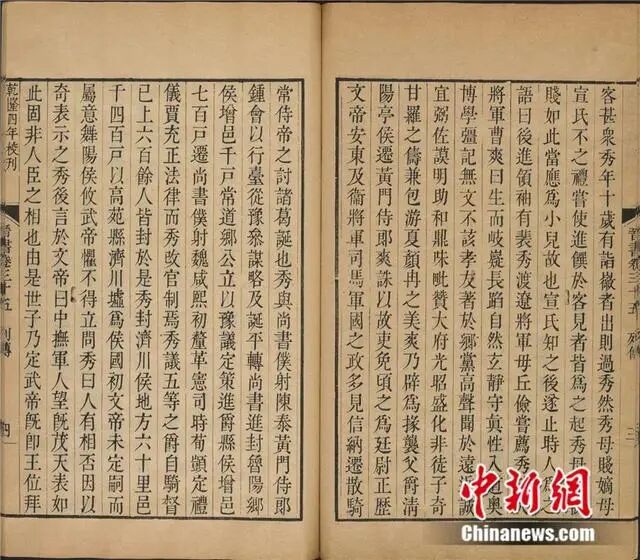 客甚衆秀年十歲有詣徽者出則過秀然秀母賤嫡母
宣氏不之禮嘗使進饌於客見者皆爲之起秀母
賤如此當應爲小兒故也宣氏知之後遂止時人爲之
語曰後進領袖有裴秀渡遼將軍毋丘儉嘗薦秀
將軍曹爽曰生而岐嶷長蹈自然玄靜守真性入道奧
博學彊記無文不該孝友著於鄉黨高聲聞於遠近誠
宜弼佐謨明助和鼎味毗贊大府光昭盛化非徒子奇
甘羅之儔兼包游夏顏冉之美爽乃辟爲掾襲父爵清
陽亭侯遷黃門侍郎爽誅以故吏免頃之爲廷尉正歷
文帝安東及衞將軍司馬軍國之政多見信納遷散騎
常侍帝之討諸葛誕也秀與尚書僕射陳泰黃門侍郎
鍾會以行臺從豫參謀略及誕平轉尚書進封魯陽鄉
侯增邑千戸常道鄉公立以豫議定策進爵縣侯增邑
七百戸遷尚書僕射魏咸熙初釐革憲司時荀顗定禮
儀賈充正法律而秀改官制焉秀議五等之爵自騎督
已上六百餘人皆封於是秀封濟川侯地方六十里邑
千四百戸以高苑縣濟川墟爲侯國初文帝未定嗣而
屬意舞陽侯攸武帝懼不得立問秀曰人有相否因以
奇表示之秀後言於文帝曰中撫軍人望既茂天表如
此固非人臣之相也由是世子乃定武帝既即王位拜
乾隆四年校刊
晉書卷三十五 列傳 四
中新网
Chinanews.com